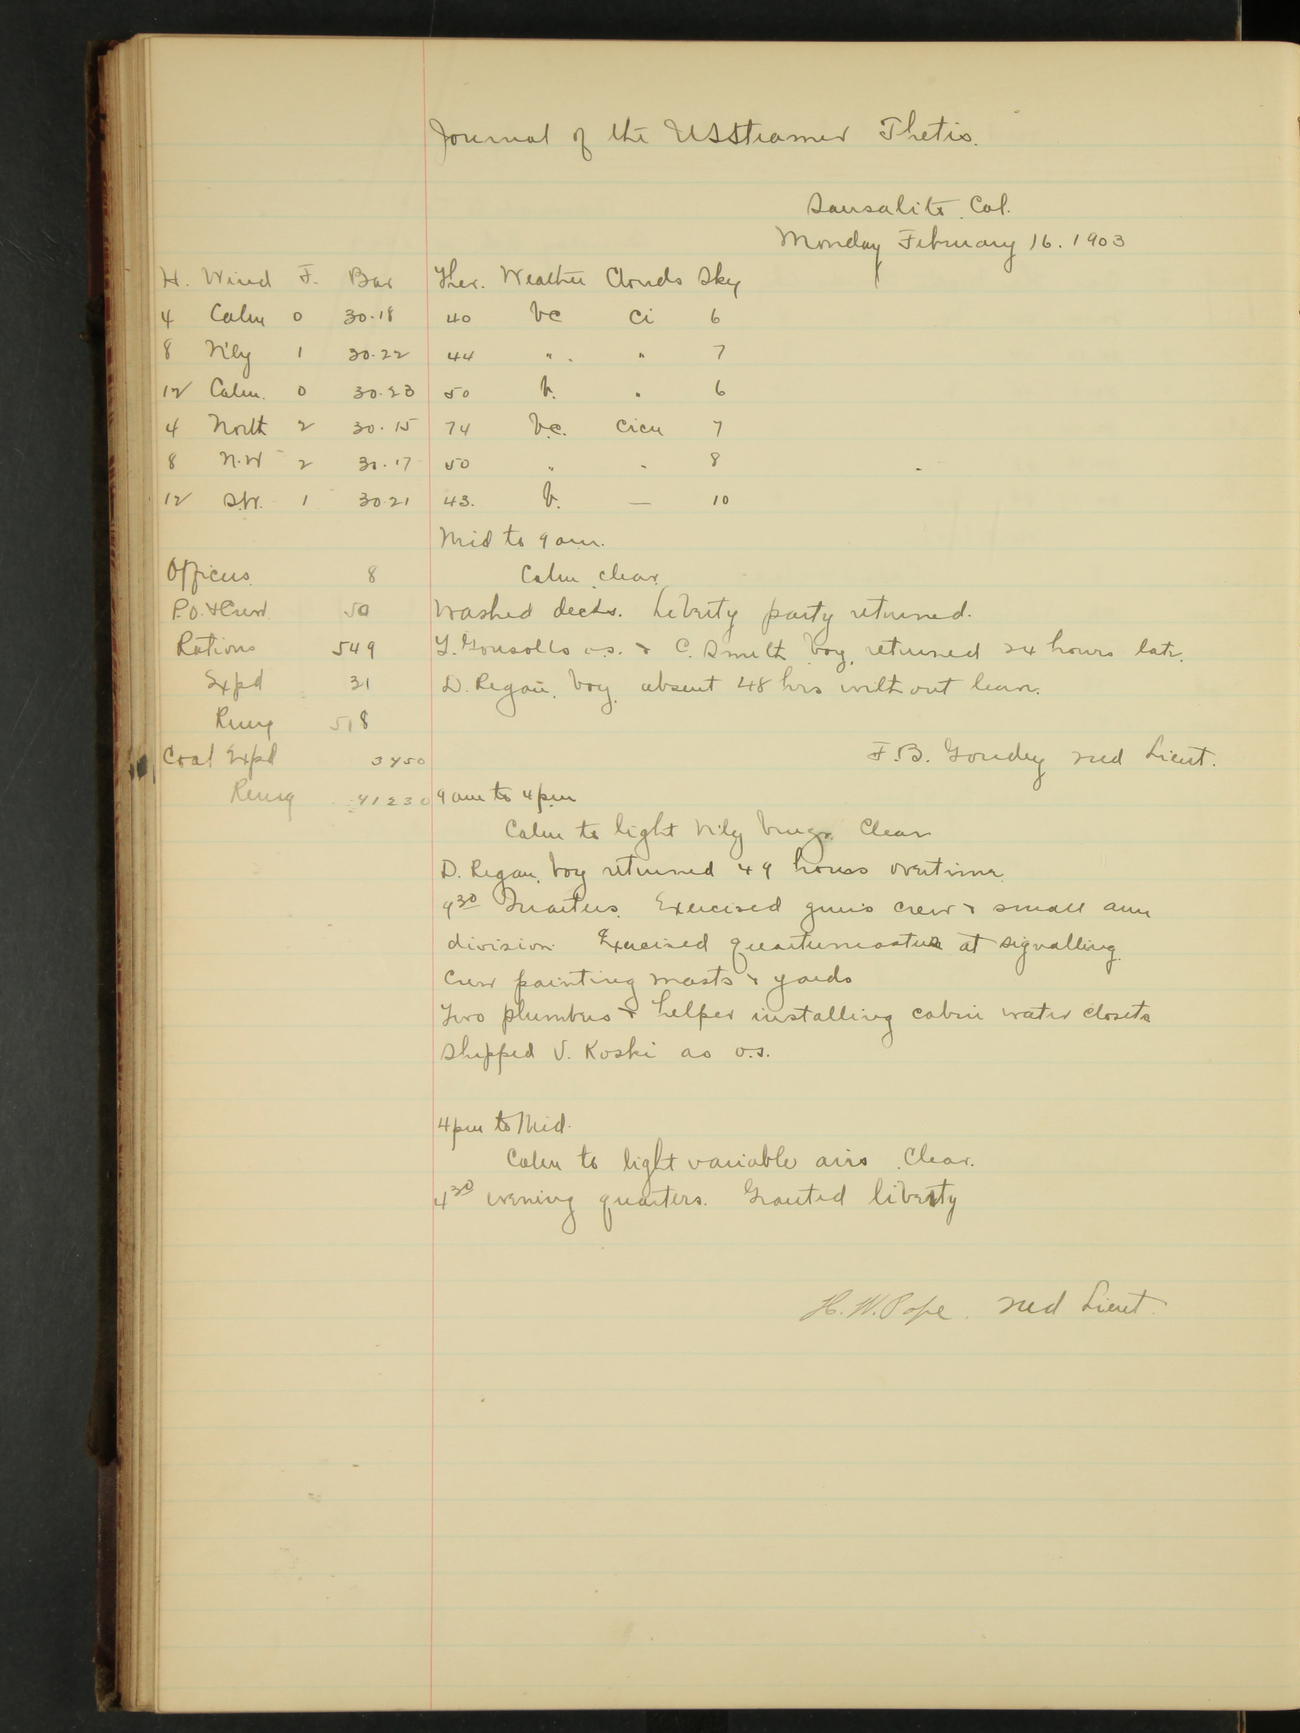 Journal of the USSteamer Thetis.
Sausalito, Cal.
Monday February 16. 1903
H. Wind F. Bar Ther. Weather Clouds Sky
4 Calm 0 30.18 40 bc Ci 6
8 N'ly 1 30.22 44 " " 7
12 Calm. 0 30.23 50 b. " 6
4 North 2 30.15 74 b.c. Cicu 7
8 N.W 2 30.17 50 " " 8
12 S.W. 1 30.21 43. b. — 10
Mid to 9 am.
Officers 8 Calm, clear.
P.O. & Crew 50 Washed decks. Liberty party returned.
Rations 549 o.s. & C. Smith, boy, returned 24 hours late.
Expd 31 D. Regan, boy, absent 48 hrs without leave.
Remg 518
Coal Expd 3450 F.B. Goudey 2nd Lieut.
Remg 41230 9 am to 4 pm
Calm to light N'ly brngs. Clear
D. Regan, boy returned 49 hours overtime.
9 30 Quarters. Exercised guns crew & small arm
division. Exercised quartermasters at signalling.
Crew painting masts & yards
Two plumbers & helper installing cabin water closets
Shipped V. Koski as o.s.
4 pm to Mid.
Calm to light variable airs. Clear.
4 30 evening quarters. Granted liberty
H. W. Pope. 2nd Lieut.